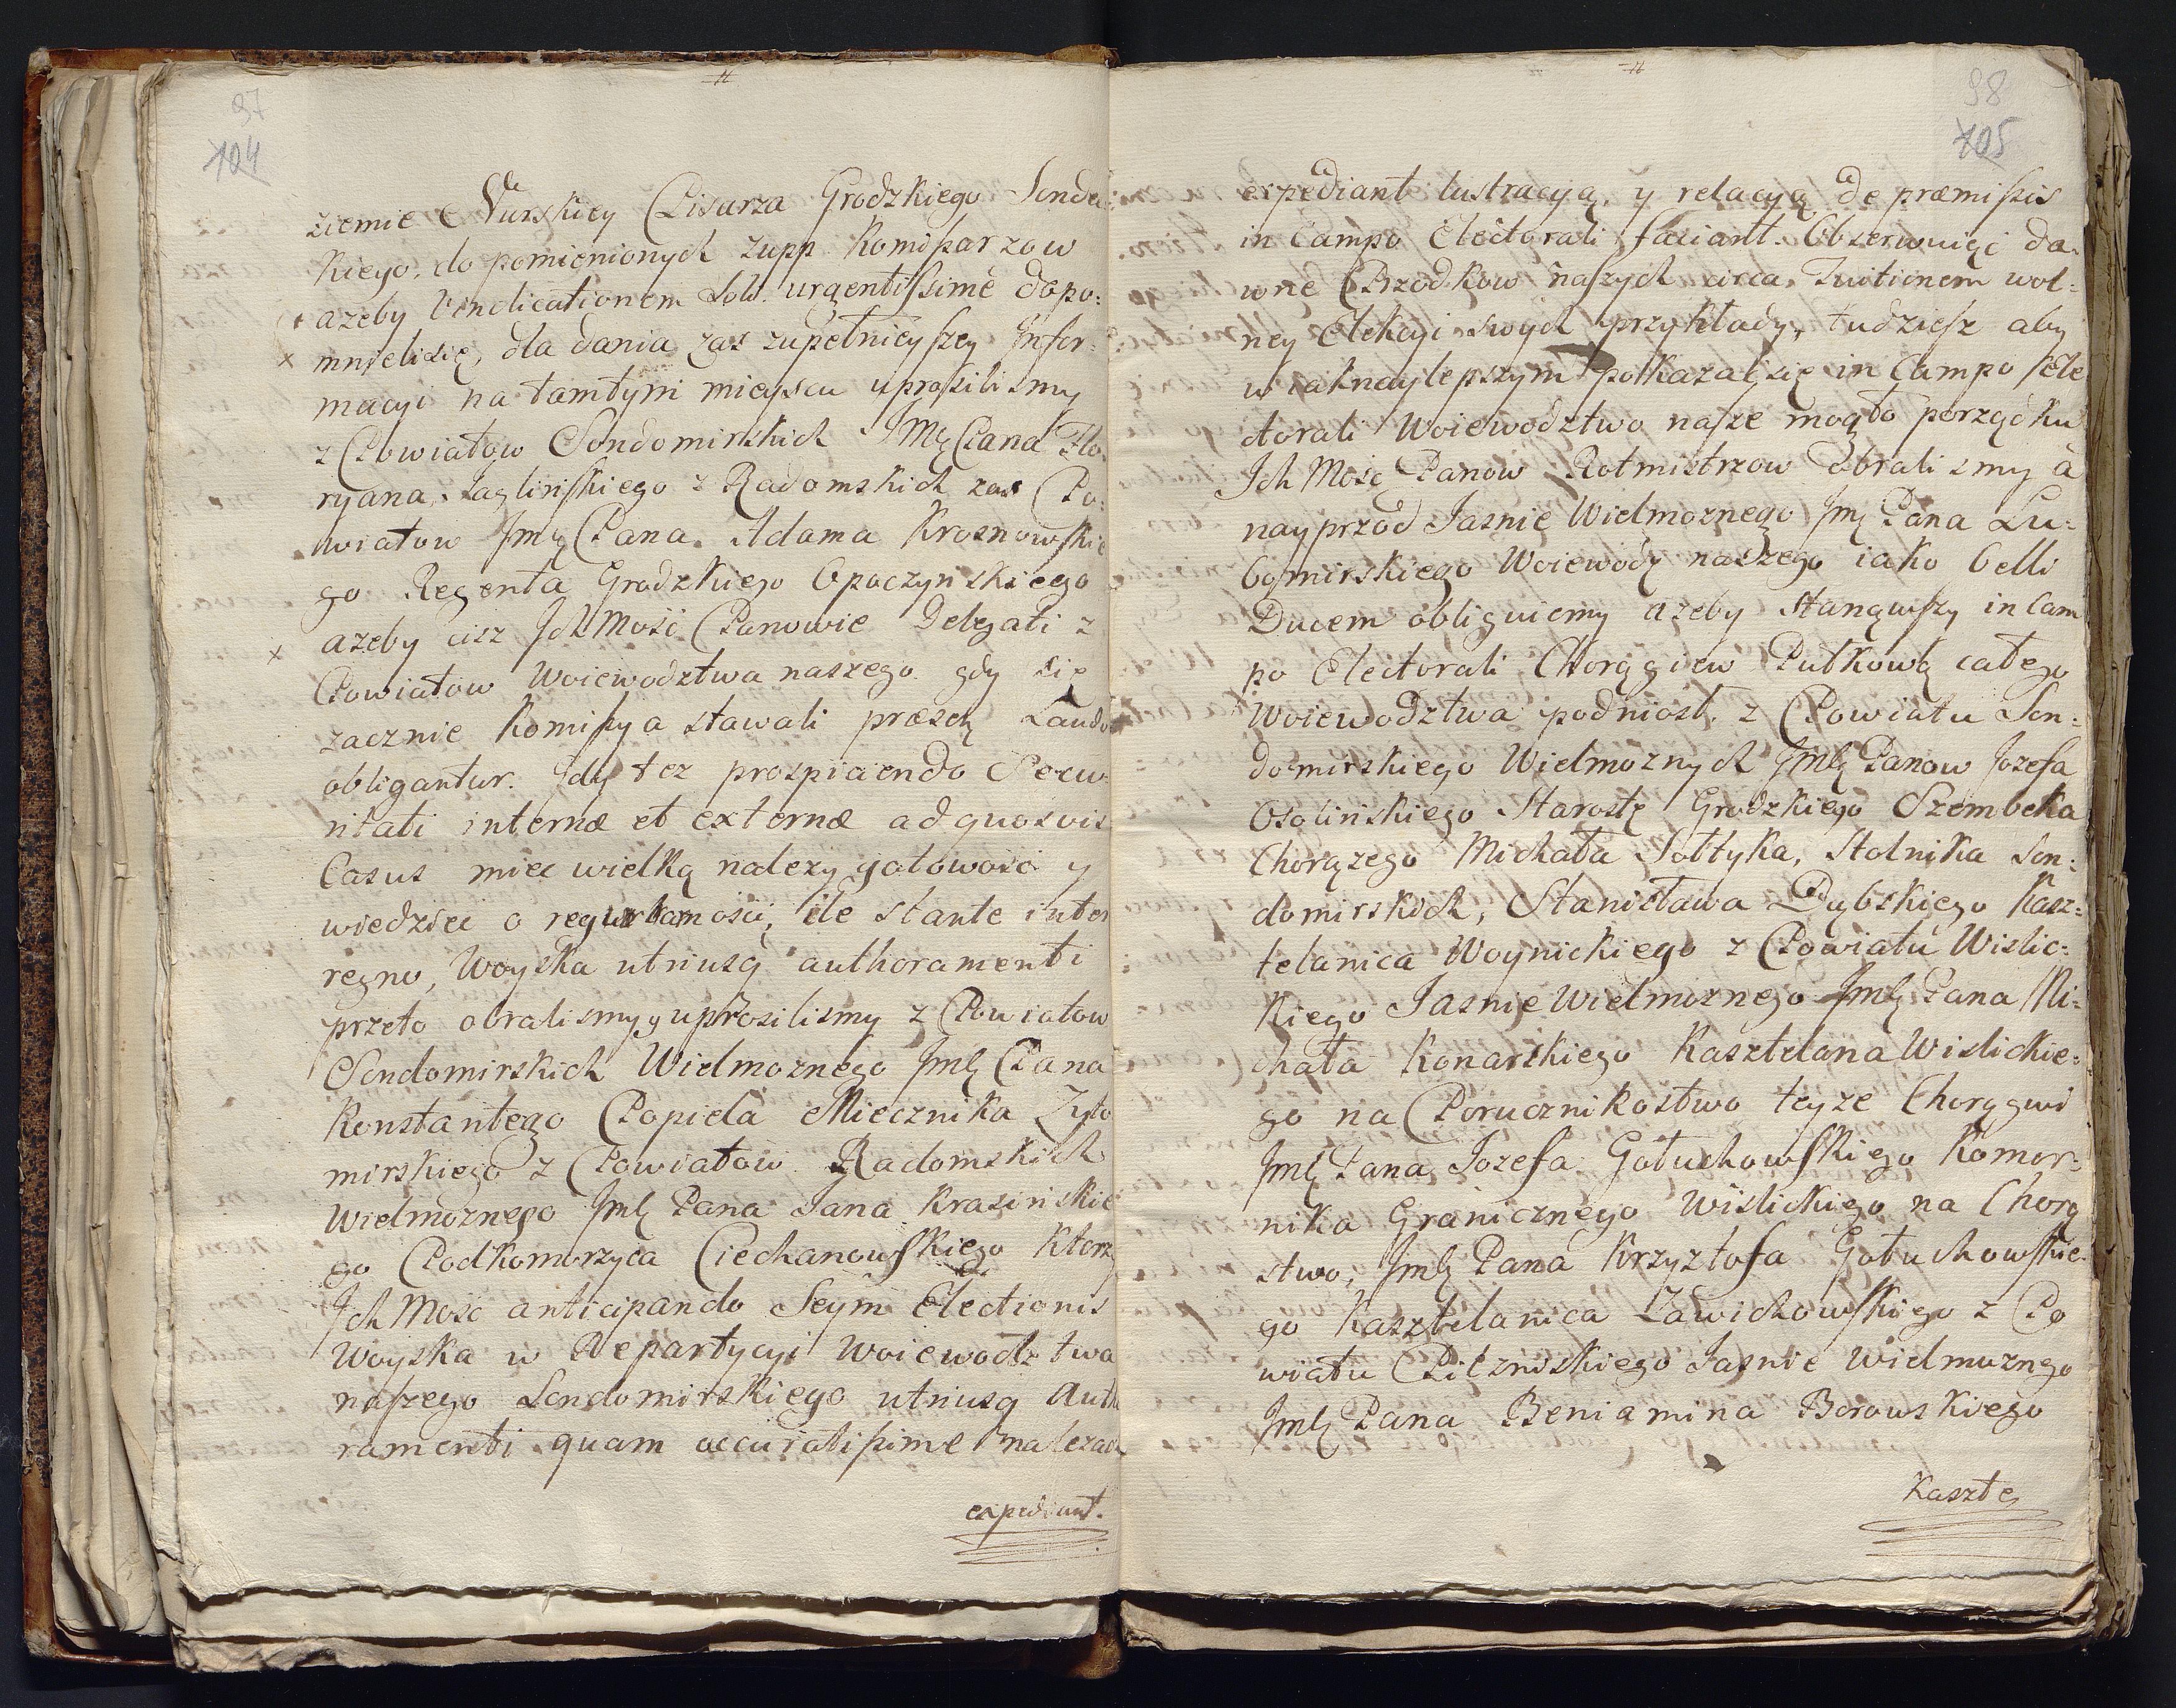 97
104
ziemie Nurskiey Pisarza Grodzkiego Sende
kiego, do pomienionych zupp Komissarzow
azeby Vindicationem Soli urgentissimè dopo:
mnielisię, dla dania zas zupełnieyszey Infor:
macyi na tamtym mieyscu uprosilismy
z Powiatow Sendomirskich JMę Pana Flo
ryana Jaglińskiego z Radomskich zas Po:
wiatow Jmę Pana Adama Krosnowskie
go Regenta Grodzkiego Opoczynskiego
azeby cisz Ich Mość Panowie Delegati z
Powiatow Woiewodztwa naszego gdy się
zacznie Komissya stawali præsenti Laudo
obligantur. Gdy tez prospiciendo Secu
ritati internæ et externæ ad quosvis
Casus miec wielką nalezy gotowość y
wiedziec o regularnosci, ile stante inter
regno, Woyska utriusq authoramenti
przeto obralismy y uprosilismy z Powiatow
Sendomirskich Wielmoznego Jmę Pana
Konstantego Popiela Miecznika Zyto
mirskiego z Powiatow Radomskich
Wielmoznego Jmę Pana Jana Krasińskie
go Podkomorzyca Ciechanowskiego Ktorz
Ich Mość anticipando Seym Electionis
Woyska w Repartycyi Woiewodztwa
naszego Sendomirskiego utriusq Autho
ramenti quam accuratissime nalezaca
expediant.
98
105
expediant lustracyią, y relacyią de præmissis
in Campo Electorali faciant. Obserwuiąc da:
wne Przodkow naszych circa Tuitionem wol:
ney Elekcyi swych przykłady, tudziesz aby
w iaknaylepszym pokazać się in Campo Ele
ctorali Woiewodztwo nasze mogło porządku
Ich Mość Panow Rotmistrzow obralismy à
nayprzod Jasnie Wielmoznego Jmę Pana Lu:
bomirskiego Woiewody naszego iako belli
Ducem obliguiemy azeby stanąwszy in Cam
po Electorali Chorągiew Pułkową całego
Woiewodztwa podniosł. z Powiatu Sen:
domirskiego Wielmoznych Jmę Panow Jozefa
Osolińskiego Starostę Grodzkiego Szembeka
Chorązego Michała Sołtyka, Stolnika Sen:
domirskich, Stanisława Dąbskiego Kasz:
telanica Woynickiego z Powiatu Wislic:
kiego Jasnie Wielmoznego Jmę Pana Mi:
chała Konarskiego Kasztelana Wislickie:
go na Porucznikostwo teyze Chorągwi
Jmę Pana Jozefa Gołuchowskiego Komor:
nika Granicznego Wislickiego na Chorą
stwo, Jmę Pana Krzysztofa Gołuchowskie
go Kasztelanica Zawichowskiego z Po
wiatu Pilznskiego Jasnie Wielmoznego
Jmę Pana Beniamina Borowskiego
Kaszte